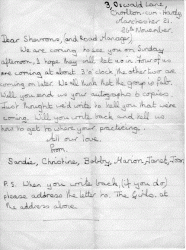 3, Oswald Lane,
Chorlton-cum-Hardy,
Manchester 21.
26th November.
Dear Shawrons, and Road Manager,
We are coming to see you on Sunday
afternoon, I hope they will let us in. Four of us
are coming at about 3 o'clock, the other two are
coming on later. We all think that the group is fab.
Will you send us your autographs & copies.
Just thought we'd write to tell you that we're
coming. Will you write back and tell us
how to get to where your practicing.
All our love.
from
Sandie, Christine, Bobby, Marion, Janet,
P.S. When you write back, (if you do)
please address the letter to The Girls, at
the address above.